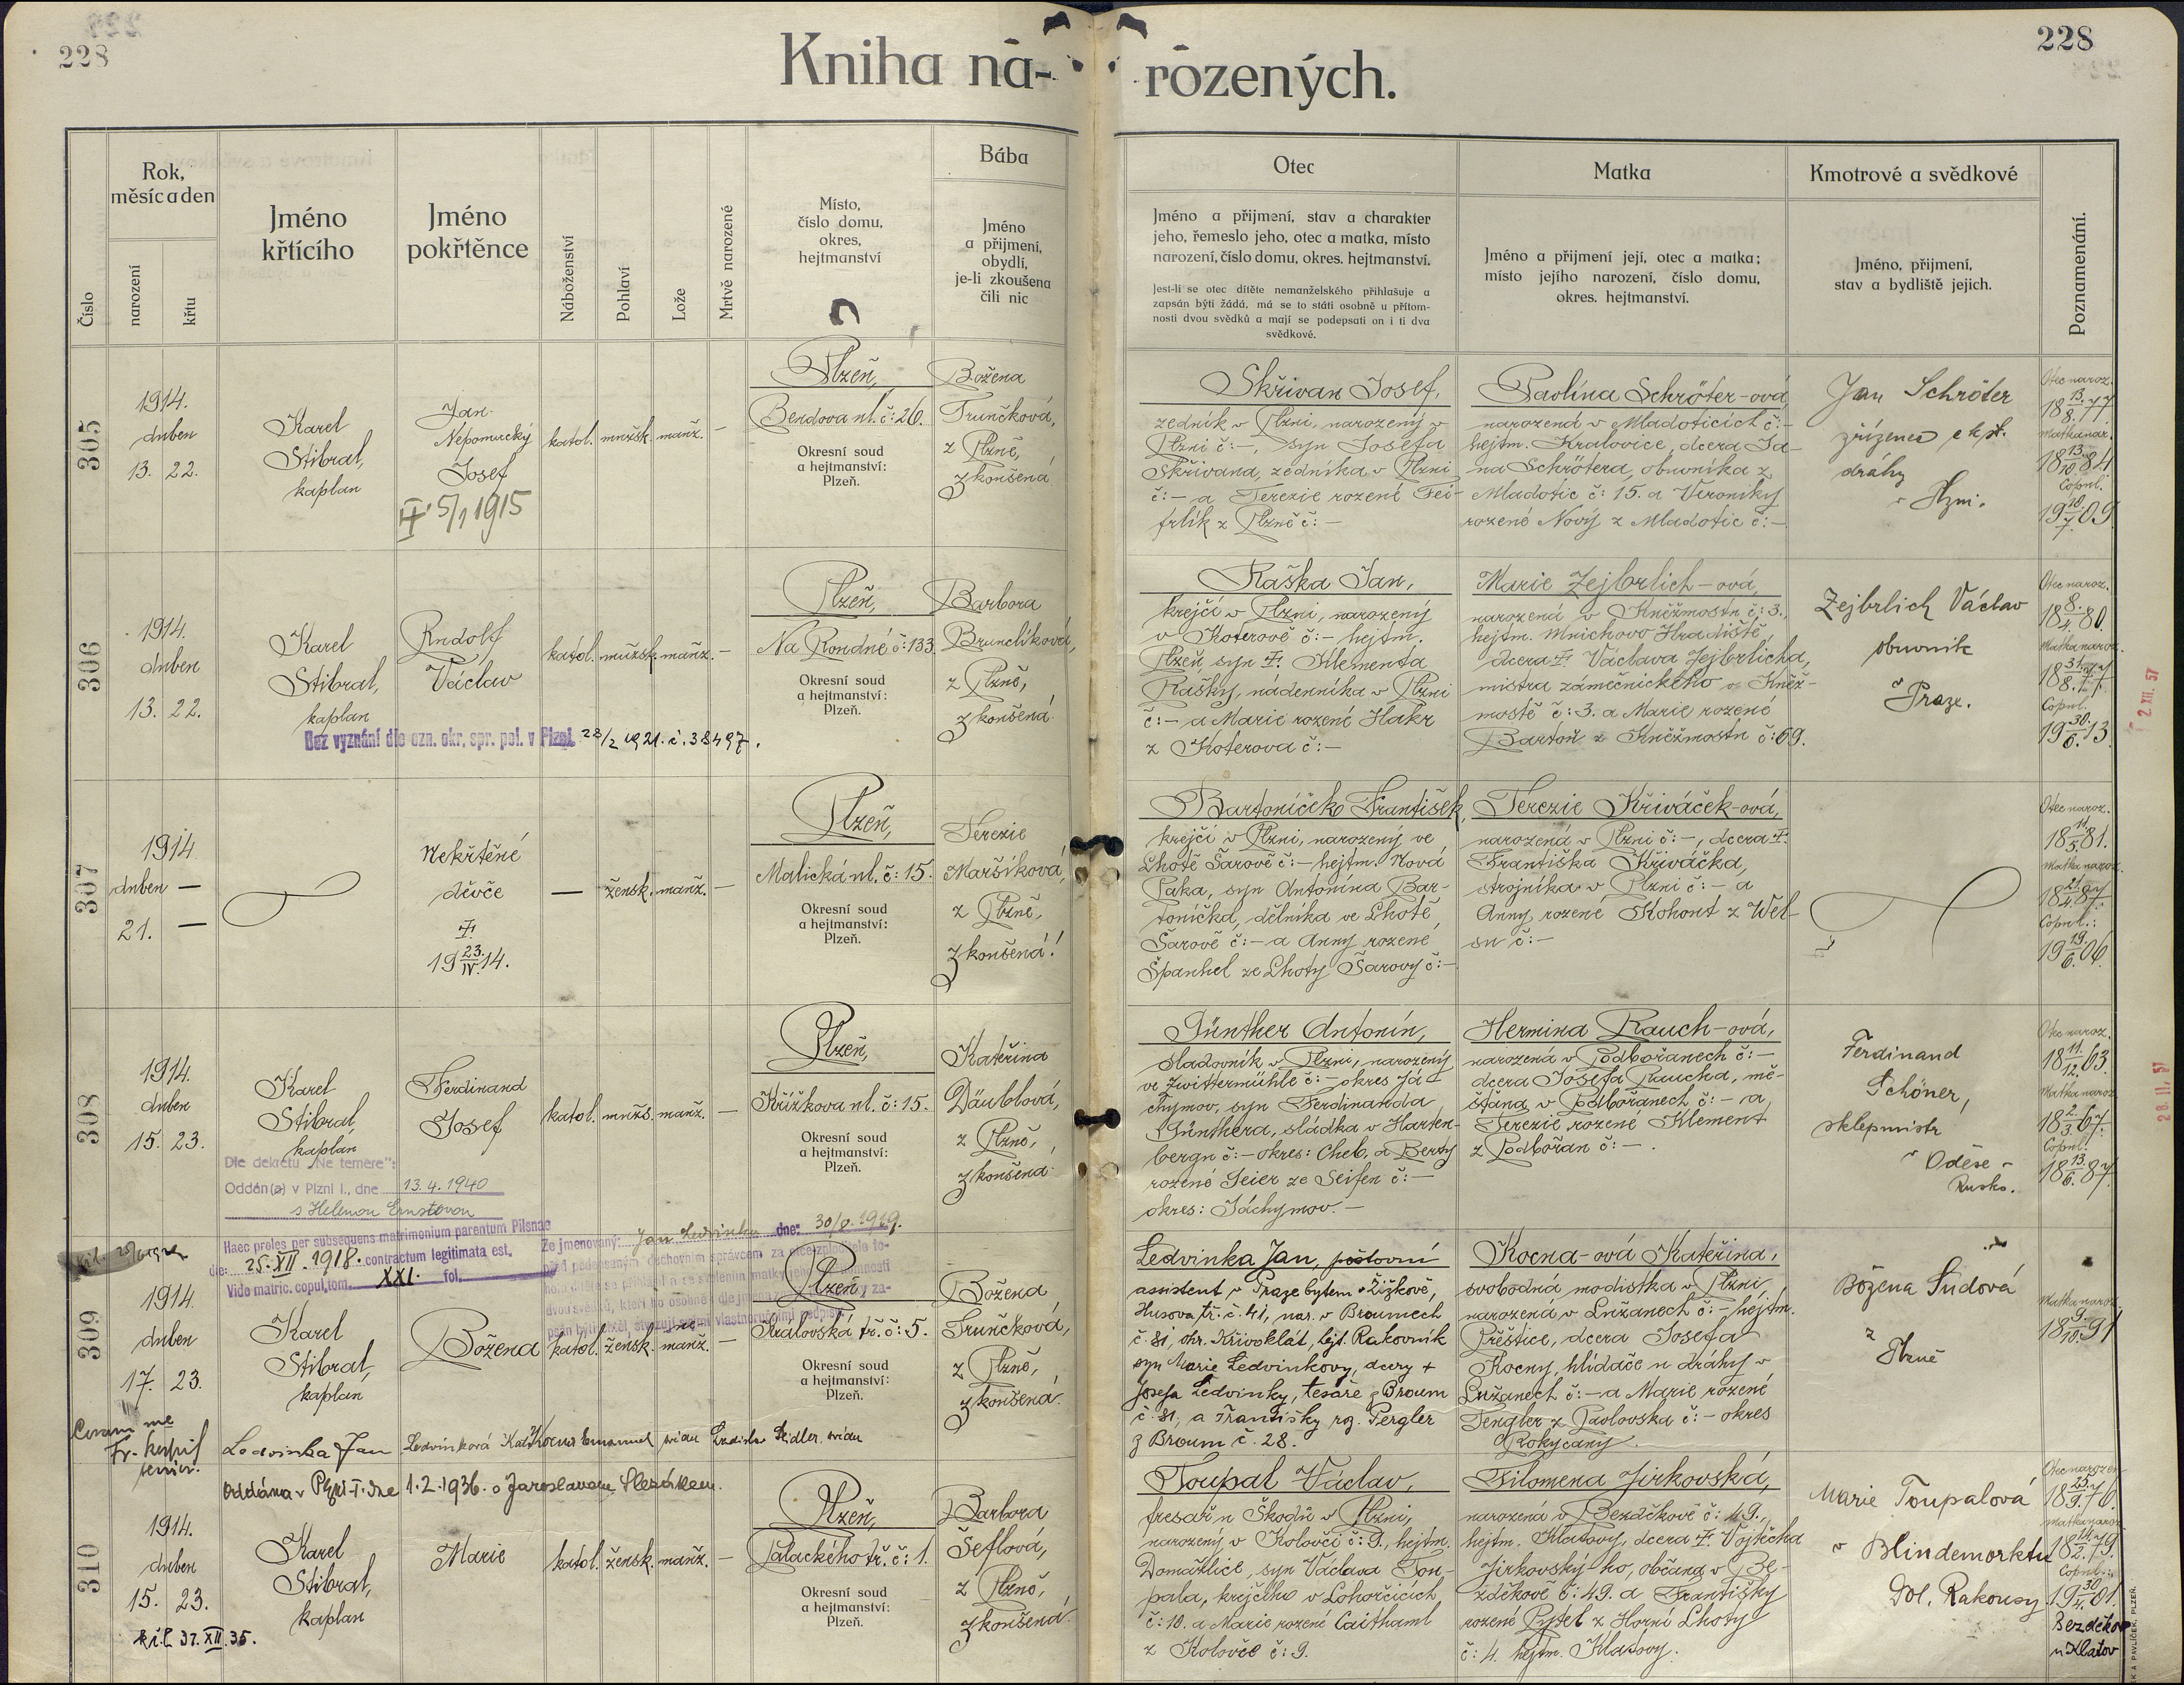 228
228
Kniha na-
rozených.
Číslo
Rok,
měsíc a den
narození
křtu
Jméno
křtícího
Jméno
pokřtěnce
Náboženství
Pohlaví
Lože
Mrtvě narozené
Místo,
číslo domu,
okres,
hejtmanství
Bába
Jméno
a přijmení,
obydlí,
je-li zkoušena
čili nic
Otec
Jméno a přijmení, stav a charakter
jeho, řemeslo jeho, otec a matka, místo
narození, číslo domu, okres. hejtmanství.
Jest-li se otec dítěte nemanželského přihlašuje a
zapsán býti žádá, má se to státi osobně u přítom-
nosti dvou svědků a mají se podepsati on i ti dva
svědkové.
Matka
Jméno a přijmení její, otec a matka;
místo jejího narození, číslo domu,
okres. hejtmanství.
Kmotrové a svědkové
Jméno, přijmení,
stav a bydliště jejich.
Poznamenání.
305
1914.
duben
13. 22.
Karel
Stibral,
kaplan
Jan
Nepomucký
Josef
5/1 1915
katol. mužsk. manž. –
Plzeň,
Bendova ul. č: 26.
Okresní soud
a hejtmanství:
Plzeň.
Božena
Trunčková,
z Plzně,
zkoušená
Skřivan Josef,
zedník v Plzni, narozený v
Plzni č: –, syn Josefa
Skřivana, zedníka v Plzni
č: – a Terezie rozené Fei-
frlík z Plzně č: –
Pavlína Schröter-ová
narozená v Mladoticích č: –
hejtm. Kralovice, dcera Ja-
na Schrötera, obuvníka z
Mladotic č: 15. a Veroniky
rozené Nový z Mladotic č: –
Jan Schröter
zřízenec c. k. st.
dráhy
v Plzni.
Otec naroz.
18 13./8. 77
Matka nar.
18 13./10. 84
Copul.
19 10./7. 09
306
1914.
duben
13. 22.
Karel
Stibral,
kaplan
Rudolf
Václav
katol. mužsk. manž. –
Bez vyznání dle ozn. okr. spr. pol. v Plzni 28/2 1921. č. 38497.
Plzeň,
Na Rondně č: 133.
Okresní soud
a hejtmanství:
Plzeň.
Barbora
Brunclíková,
z Plzně,
zkoušená
Raška Jan,
krejčí v Plzni, narozený
v Koterově č: – hejtm.
Plzeň, syn † Klementa
Rašky, nádenníka v Plzni
č: – a Marie rozené Hakr
z Koterova č: –
Marie Zejbrlich-ová
narozená v Kněžmostu č: 3.,
hejtm. Mnichovo Hradiště,
dcera † Václava Zejbrlicha,
mistra zámečnického v Kněž-
mostě č: 3. a Marie rozené
Bartoň z Kněžmostu č: 69.
Zejbrlich Václav
obuvník
v Praze.
Otec naroz.
18 8./4. 80
Matka naroz.
18 31./8. 77
Copul.
19 30./6. 13
2 XII. 57
307
1914
duben –
21. –
Nekřtěné
děvče
†
19 23./IV. 14.
– žensk. manž. –
Plzeň,
Malická ul. č: 15.
Okresní soud
a hejtmanství:
Plzeň.
Terezie
Maršíková,
z Plzně,
zkoušená!
Bartoníček František,
krejčí v Plzni, narozený ve
Lhotě Šarově č: – hejtm. Nová
Paka, syn Antonína Bar-
toníčka, dělníka ve Lhotě
Šarově č: – a Anny rozené
Španhel ze Lhoty Šarovy č: –
Terezie Křiváček-ová,
narozená v Plzni č: –, dcera †
Františka Křiváčka,
strojníka v Plzni č: – a
Anny rozené Kohout z Wel-
su č: –
Otec naroz.
18 11./5. 81.
Matka naroz.
18 21./4. 87.
Copul.:
19 19./6. 06.
308
1914.
duben
15. 23.
Karel
Stibral,
kaplan
Ferdinand
Josef
katol. mužs. manž. –
Dle dekretu „Ne temere“:
Oddán(a) v Plzni I., dne 13.4.1940
s Helenou Ernstovou
Plzeň,
Křížkova ul. č: 15.
Okresní soud
a hejtmanství:
Plzeň.
Kateřina
Däublová,
z Plzně,
zkoušená
Günther Antonín,
sladovník v Plzni, narozený
ve Zwittermühle č: – okres Já-
chymov, syn Ferdinanda
Günthera, sládka v Harten-
bergu č: – okres: Cheb, a Berty
rozené Seier ze Seifen č: –
okres: Jáchymov. –
Hermina Rauch-ová,
narozená v Podbořanech č: –
dcera Josefa Raucha, mě-
šťana v Podbořanech č: – a
Terezie rozené Klement
z Podbořan č: –.
Ferdinand
Schöner,
sklepmistr
v Oděse –
Rusko.
Otec naroz.
18 11./12. 63.
Matka naroz.
18 2./3. 67.
Copul:
18 13./6. 87.
28. II. 57
309
Haec proles per subsequens matrimonium parentum Pilsnae
die: 25. XII. 1918. contractum legitimata est.
Vide matric. copul. tom. XXI. fol.
Ze jmenovaný: Jan Ledvinka dne: 30/8. 1919.
1914.
duben
17. 23.
Karel
Stibral,
kaplan
Božena
katol. žensk. manž. –
Plzeň,
Královská tř. č: 5.
Okresní soud
a hejtmanství:
Plzeň.
Božena
Trunčková,
z Plzně,
zkoušená
Ledvinka Jan, poštovní
assistent v Praze bytem v Žižkově,
Husova tř. č. 41, nar. v Broumech
č. 81, okr. Křivoklát, hejt. Rakovník
syn Marie Ledvinkovy, dcery †
Josefa Ledvinky, tesaře z Broum
č. 81, a Františky roz. Pergler
z Broum č. 28.
Kocna-ová Kateřina,
svobodná modistka v Plzni,
narozená v Lužanech č: – hejtm.
Přeštice, dcera Josefa
Kocny, hlídače u dráhy v
Lužanech č: – a Marie rozené
Tengler z Pavlovska č: – okres
Rokycany.
Božena Sudová
z Plzně
Matka naroz.
18 9./10. 91
Coram me
Ledvinka Jan Ledvinková Kat. Kocna Emanuel svědek Ladislav Seidler svědek
Oddána v Plzni-I. dne 1.2.1936. s Jaroslavem Slezákem.
310
1914.
duben
15. 23.
Karel
Stibral,
kaplan
Marie
katol. žensk. manž. –
31. XII. 35.
Plzeň,
Palackého tř. č: 1.
Okresní soud
a hejtmanství:
Plzeň.
Barbora
Šeflová,
z Plzně,
zkoušená
Toupal Václav,
fresař u Škodů v Plzni,
narozený v Kolovči č: 9., hejtm.
Domažlice, syn Václava Tou-
pala, krejčího v Lohořčicích
č: 10. a Marie rozené Caithaml
z Kolovče č: 9.
Filomena Jirkovská,
narozená v Bezděkově č: 49.,
hejtm. Klatovy, dcera † Vojtěcha
Jirkovský-ho, občana v Be-
zděkově č: 49. a Františky
rozené Pytel z Horní Lhoty
č: 4. hejtm. Klatovy.
Marie Toupalová
v Blindemorktu
Dol. Rakousy
Otec narozen
18 25./9. 76.
Matka naroz.
18 14./2. 79.
Copul.:
19 30./4. 01.
Bezděkov
u Klatov